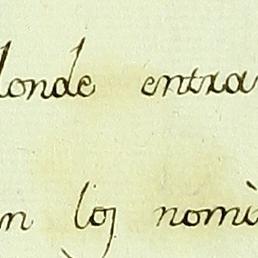 londe entra
n los nomi